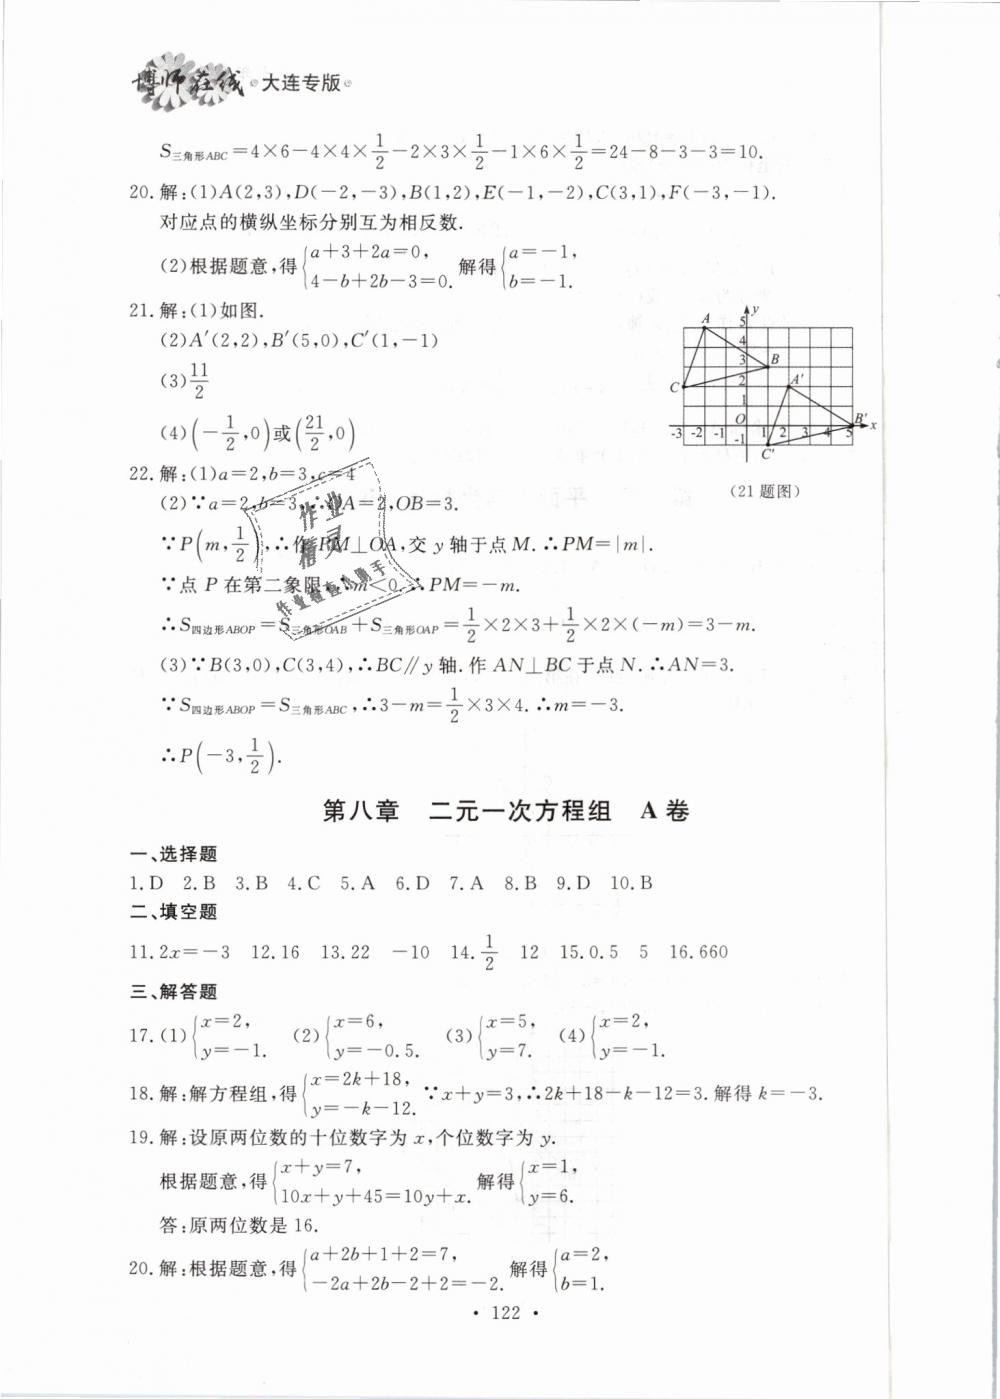 博师在线·大连专版·
S三角形ABC=4×6-4×4×1/2-2×3×1/2-1×6×1/2=24-8-3-3=10.
20.解:(1)A(2,3),D(-2,-3),B(1,2),E(-1,-2),C(3,1),F(-3,-1).
对应点的横纵坐标分别互为相反数.
(2)根据题意,得{a+3+2a=0, 4-b+2b-3=0. 解得{a=-1, b=-1.
21.解:(1)如图.
(2)A′(2,2),B′(5,0),C′(1,-1)
(3)11/2
(4)(-1/2,0)或(21/2,0)
y
A 5
4
3 B
C 2 A′
1
O B′
-3 -2 -1 1 2 3 4 5 x
-1 C′
(21题图)
22.解:(1)a=2,b=3,c=4
(2)∵a=2,b=3,∴OA=2,OB=3.
∵P(m,1/2),∴作PM⊥OA,交y轴于点M.∴PM=|m|.
∵点P在第二象限,∴m<0.∴PM=-m.
∴S四边形ABOP=S三角形OAB+S三角形OAP=1/2×2×3+1/2×2×(-m)=3-m.
(3)∵B(3,0),C(3,4),∴BC∥y轴.作AN⊥BC于点N.∴AN=3.
∵S四边形ABOP=S三角形ABC,∴3-m=1/2×3×4.∴m=-3.
∴P(-3,1/2).
作业
精灵
作业检查小助手
第八章 二元一次方程组 A卷
一、选择题
1.D 2.B 3.B 4.C 5.A 6.D 7.A 8.B 9.D 10.B
二、填空题
11.2x=-3 12.16 13.22 -10 14.1/2 12 15.0.5 5 16.660
三、解答题
17.(1){x=2, y=-1. (2){x=6, y=-0.5. (3){x=5, y=7. (4){x=2, y=-1.
18.解:解方程组,得{x=2k+18, y=-k-12. ∵x+y=3,∴2k+18-k-12=3.解得k=-3.
19.解:设原两位数的十位数字为x,个位数字为y.
根据题意,得{x+y=7, 10x+y+45=10y+x. 解得{x=1, y=6.
答:原两位数是16.
20.解:根据题意,得{a+2b+1+2=7, -2a+2b-2+2=-2. 解得{a=2, b=1.
·122·